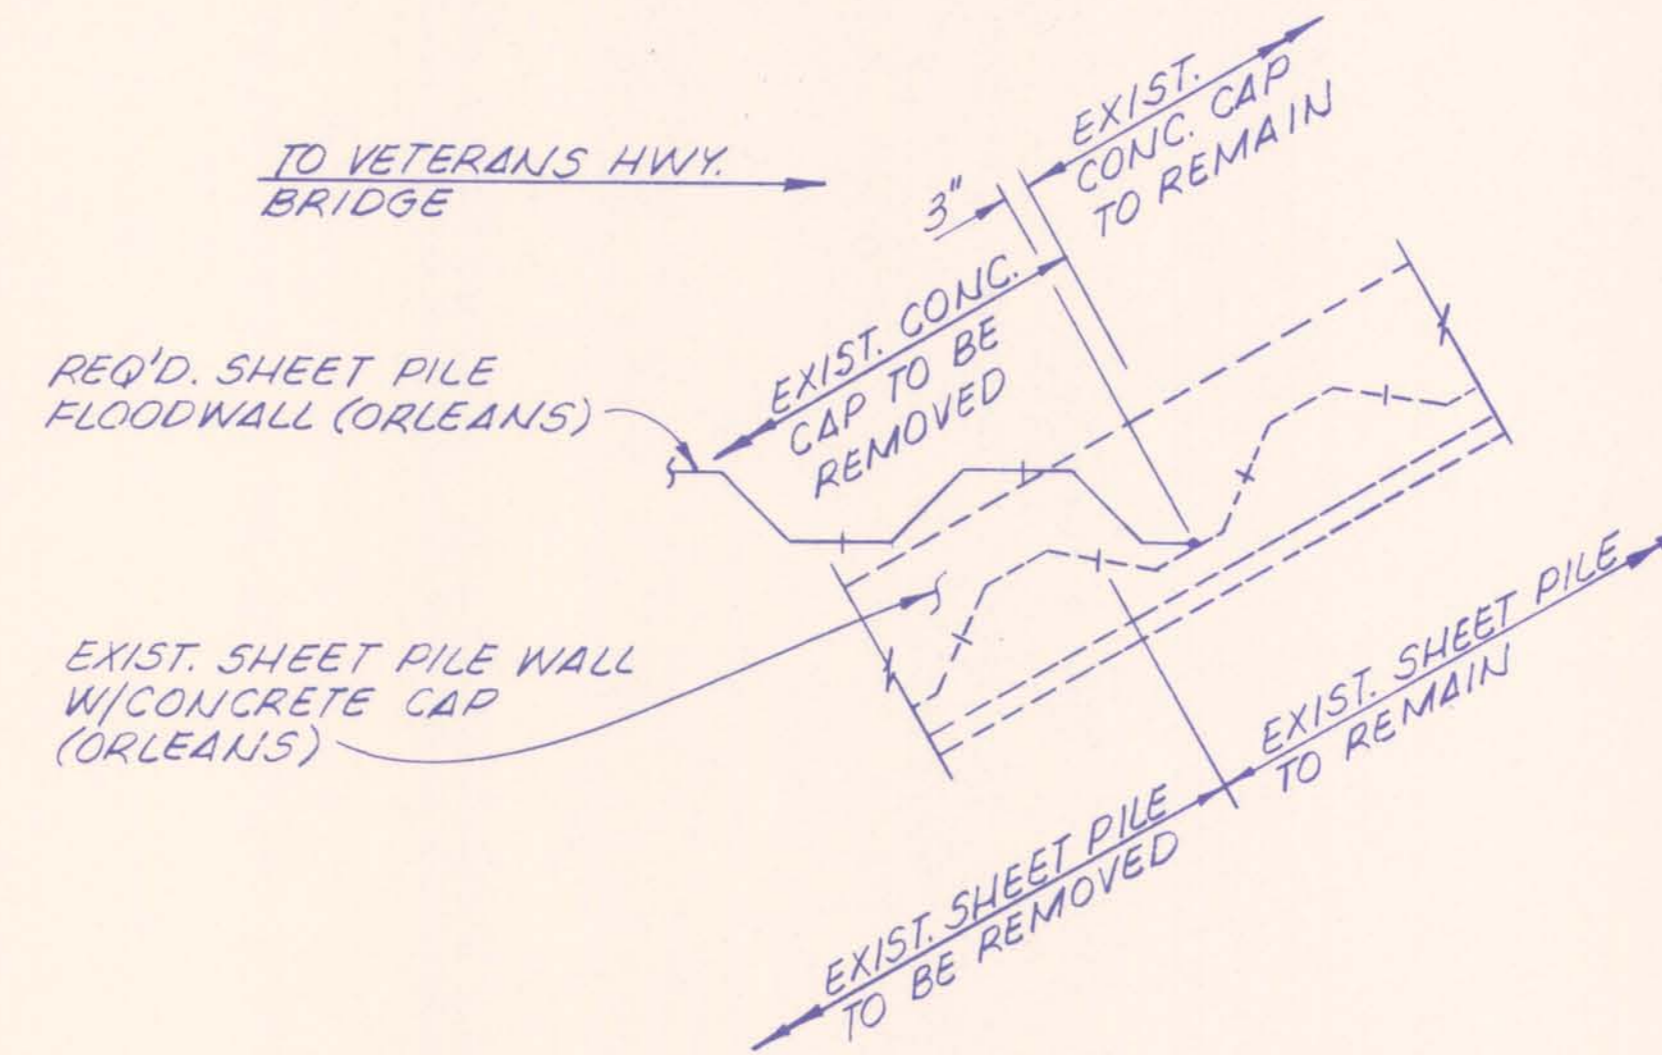 TO VETERANS HWY.
BRIDGE
EXIST.
CONC. CAP
TO REMAIN
3"
EXIST. CONC.
CAP TO BE
REMOVED
REQ'D. SHEET PILE
FLOODWALL (ORLEANS)
EXIST. SHEET PILE WALL
W/CONCRETE CAP
(ORLEANS)
EXIST. SHEET PILE
TO REMAIN
EXIST. SHEET PILE
TO BE REMOVED